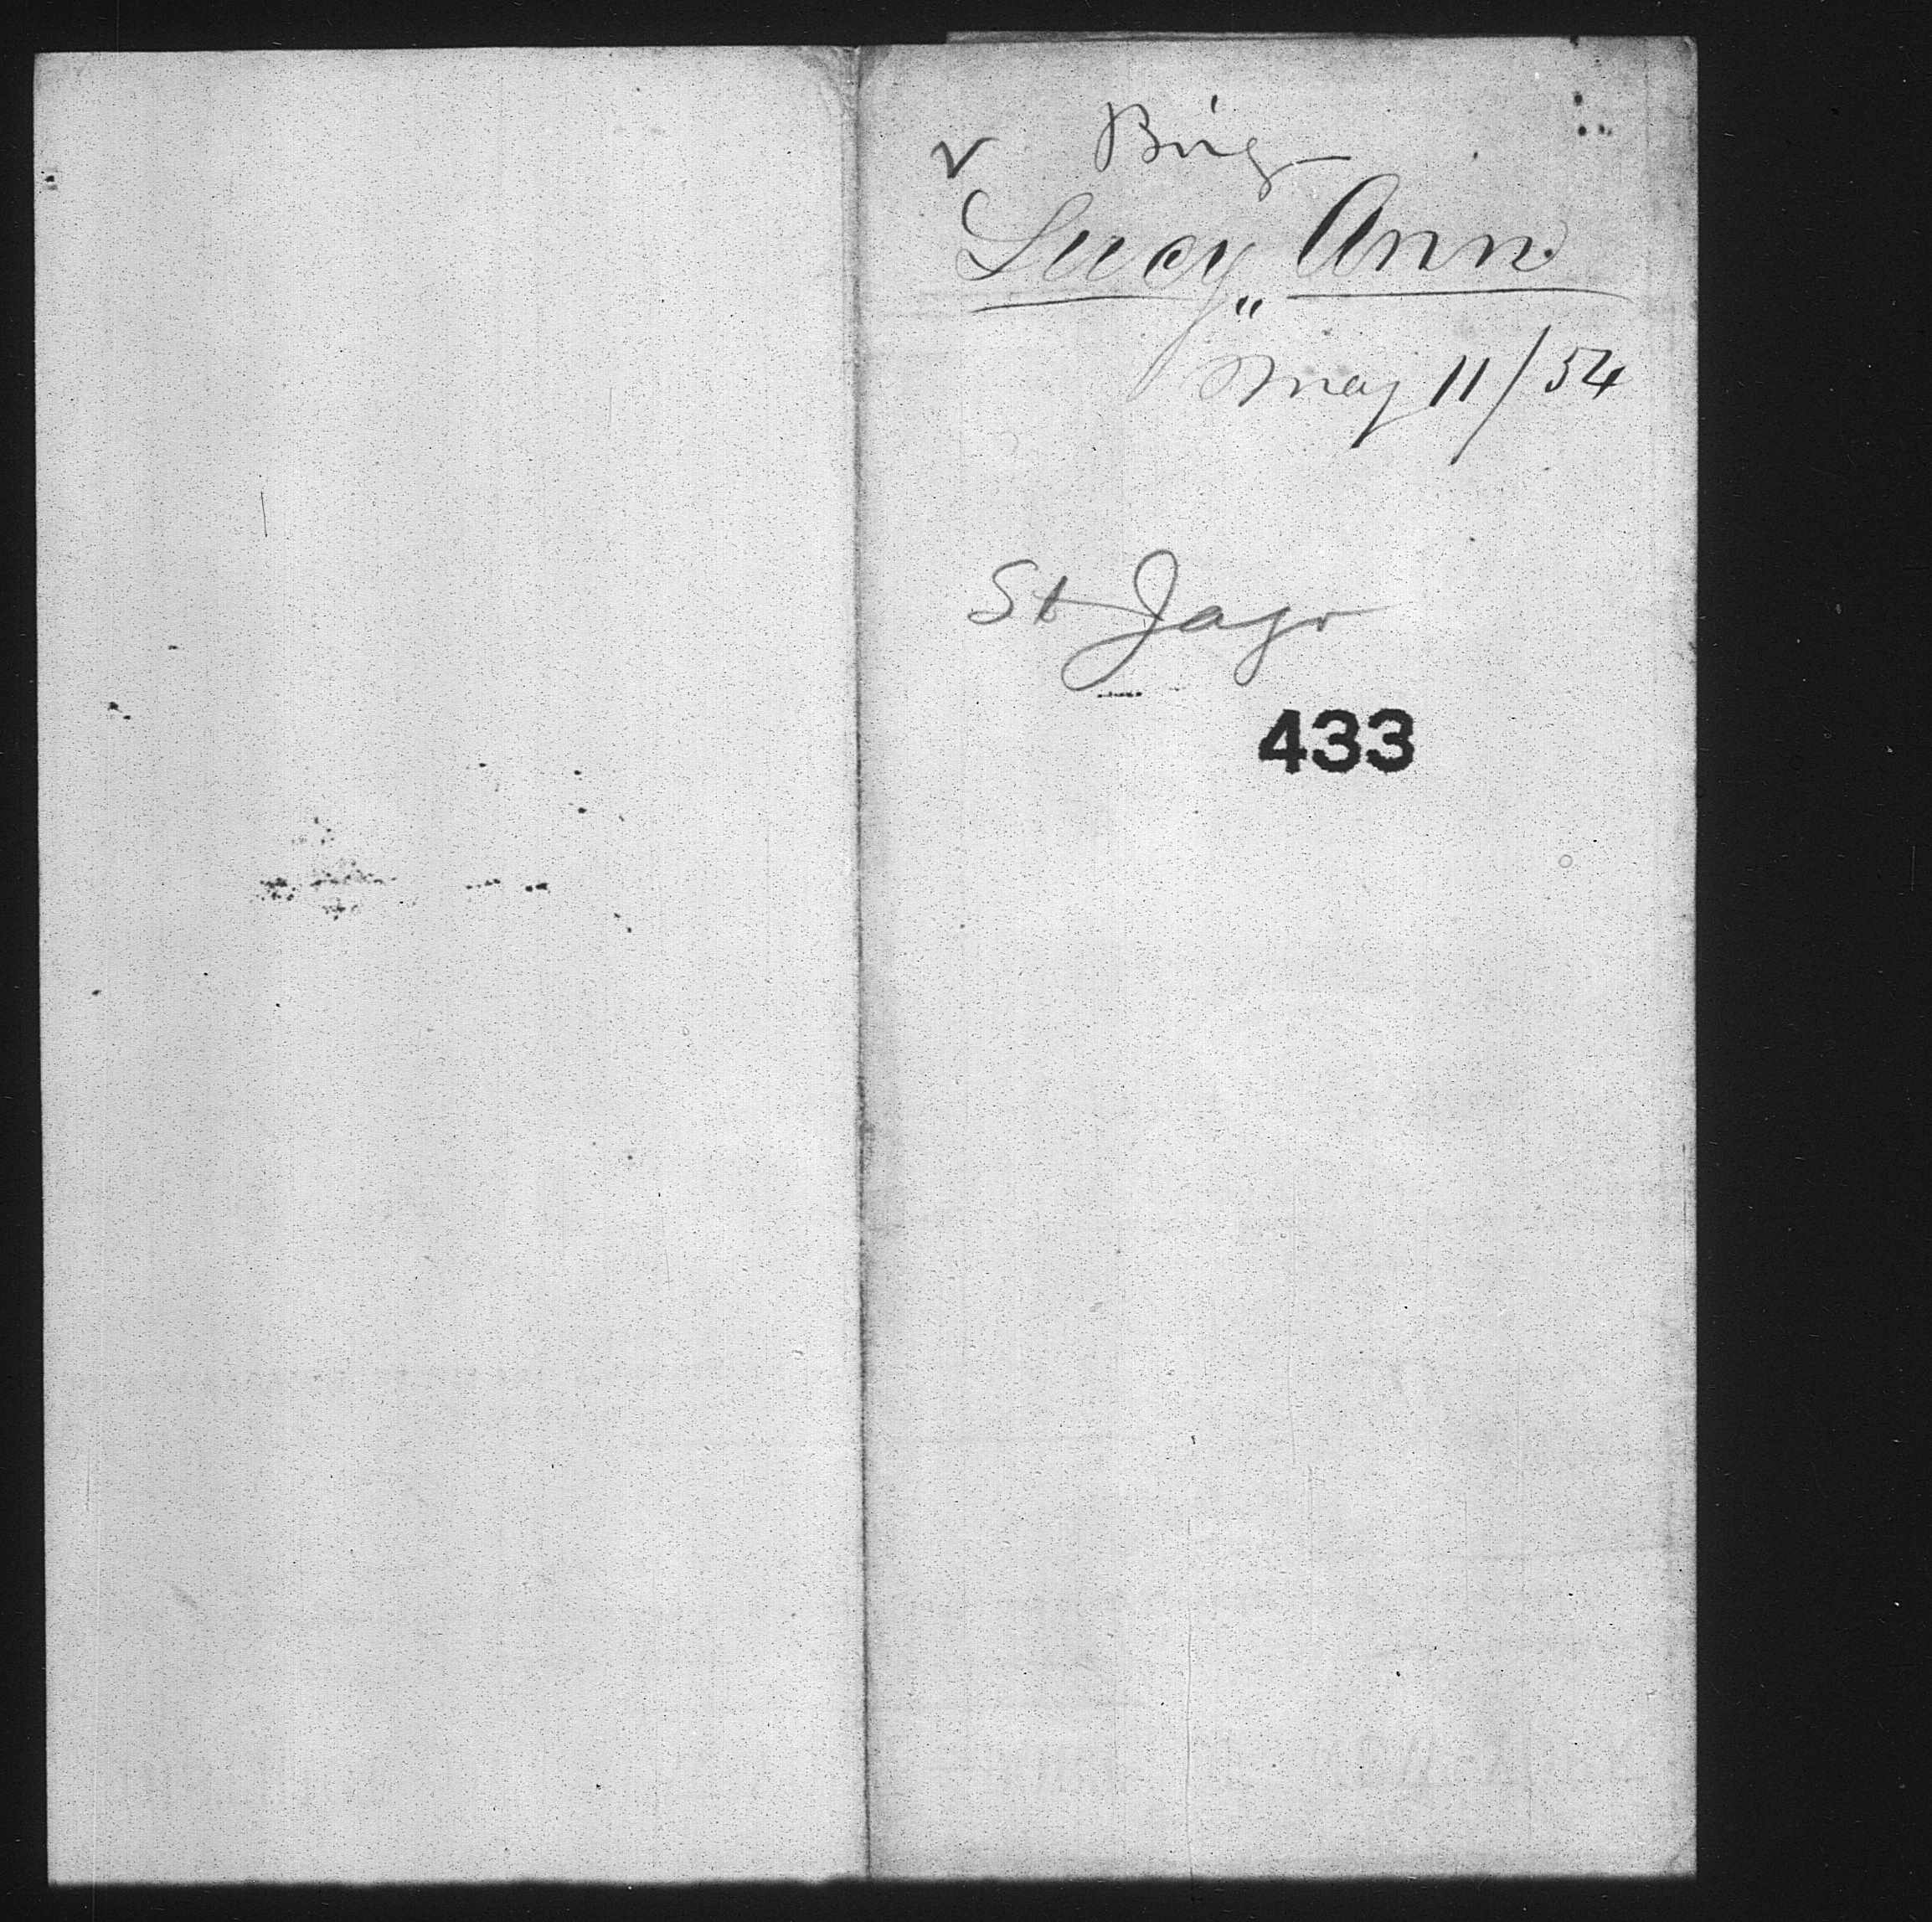 ✓ Brig
Lucy Ann
"
May 11/54
St Jago
433